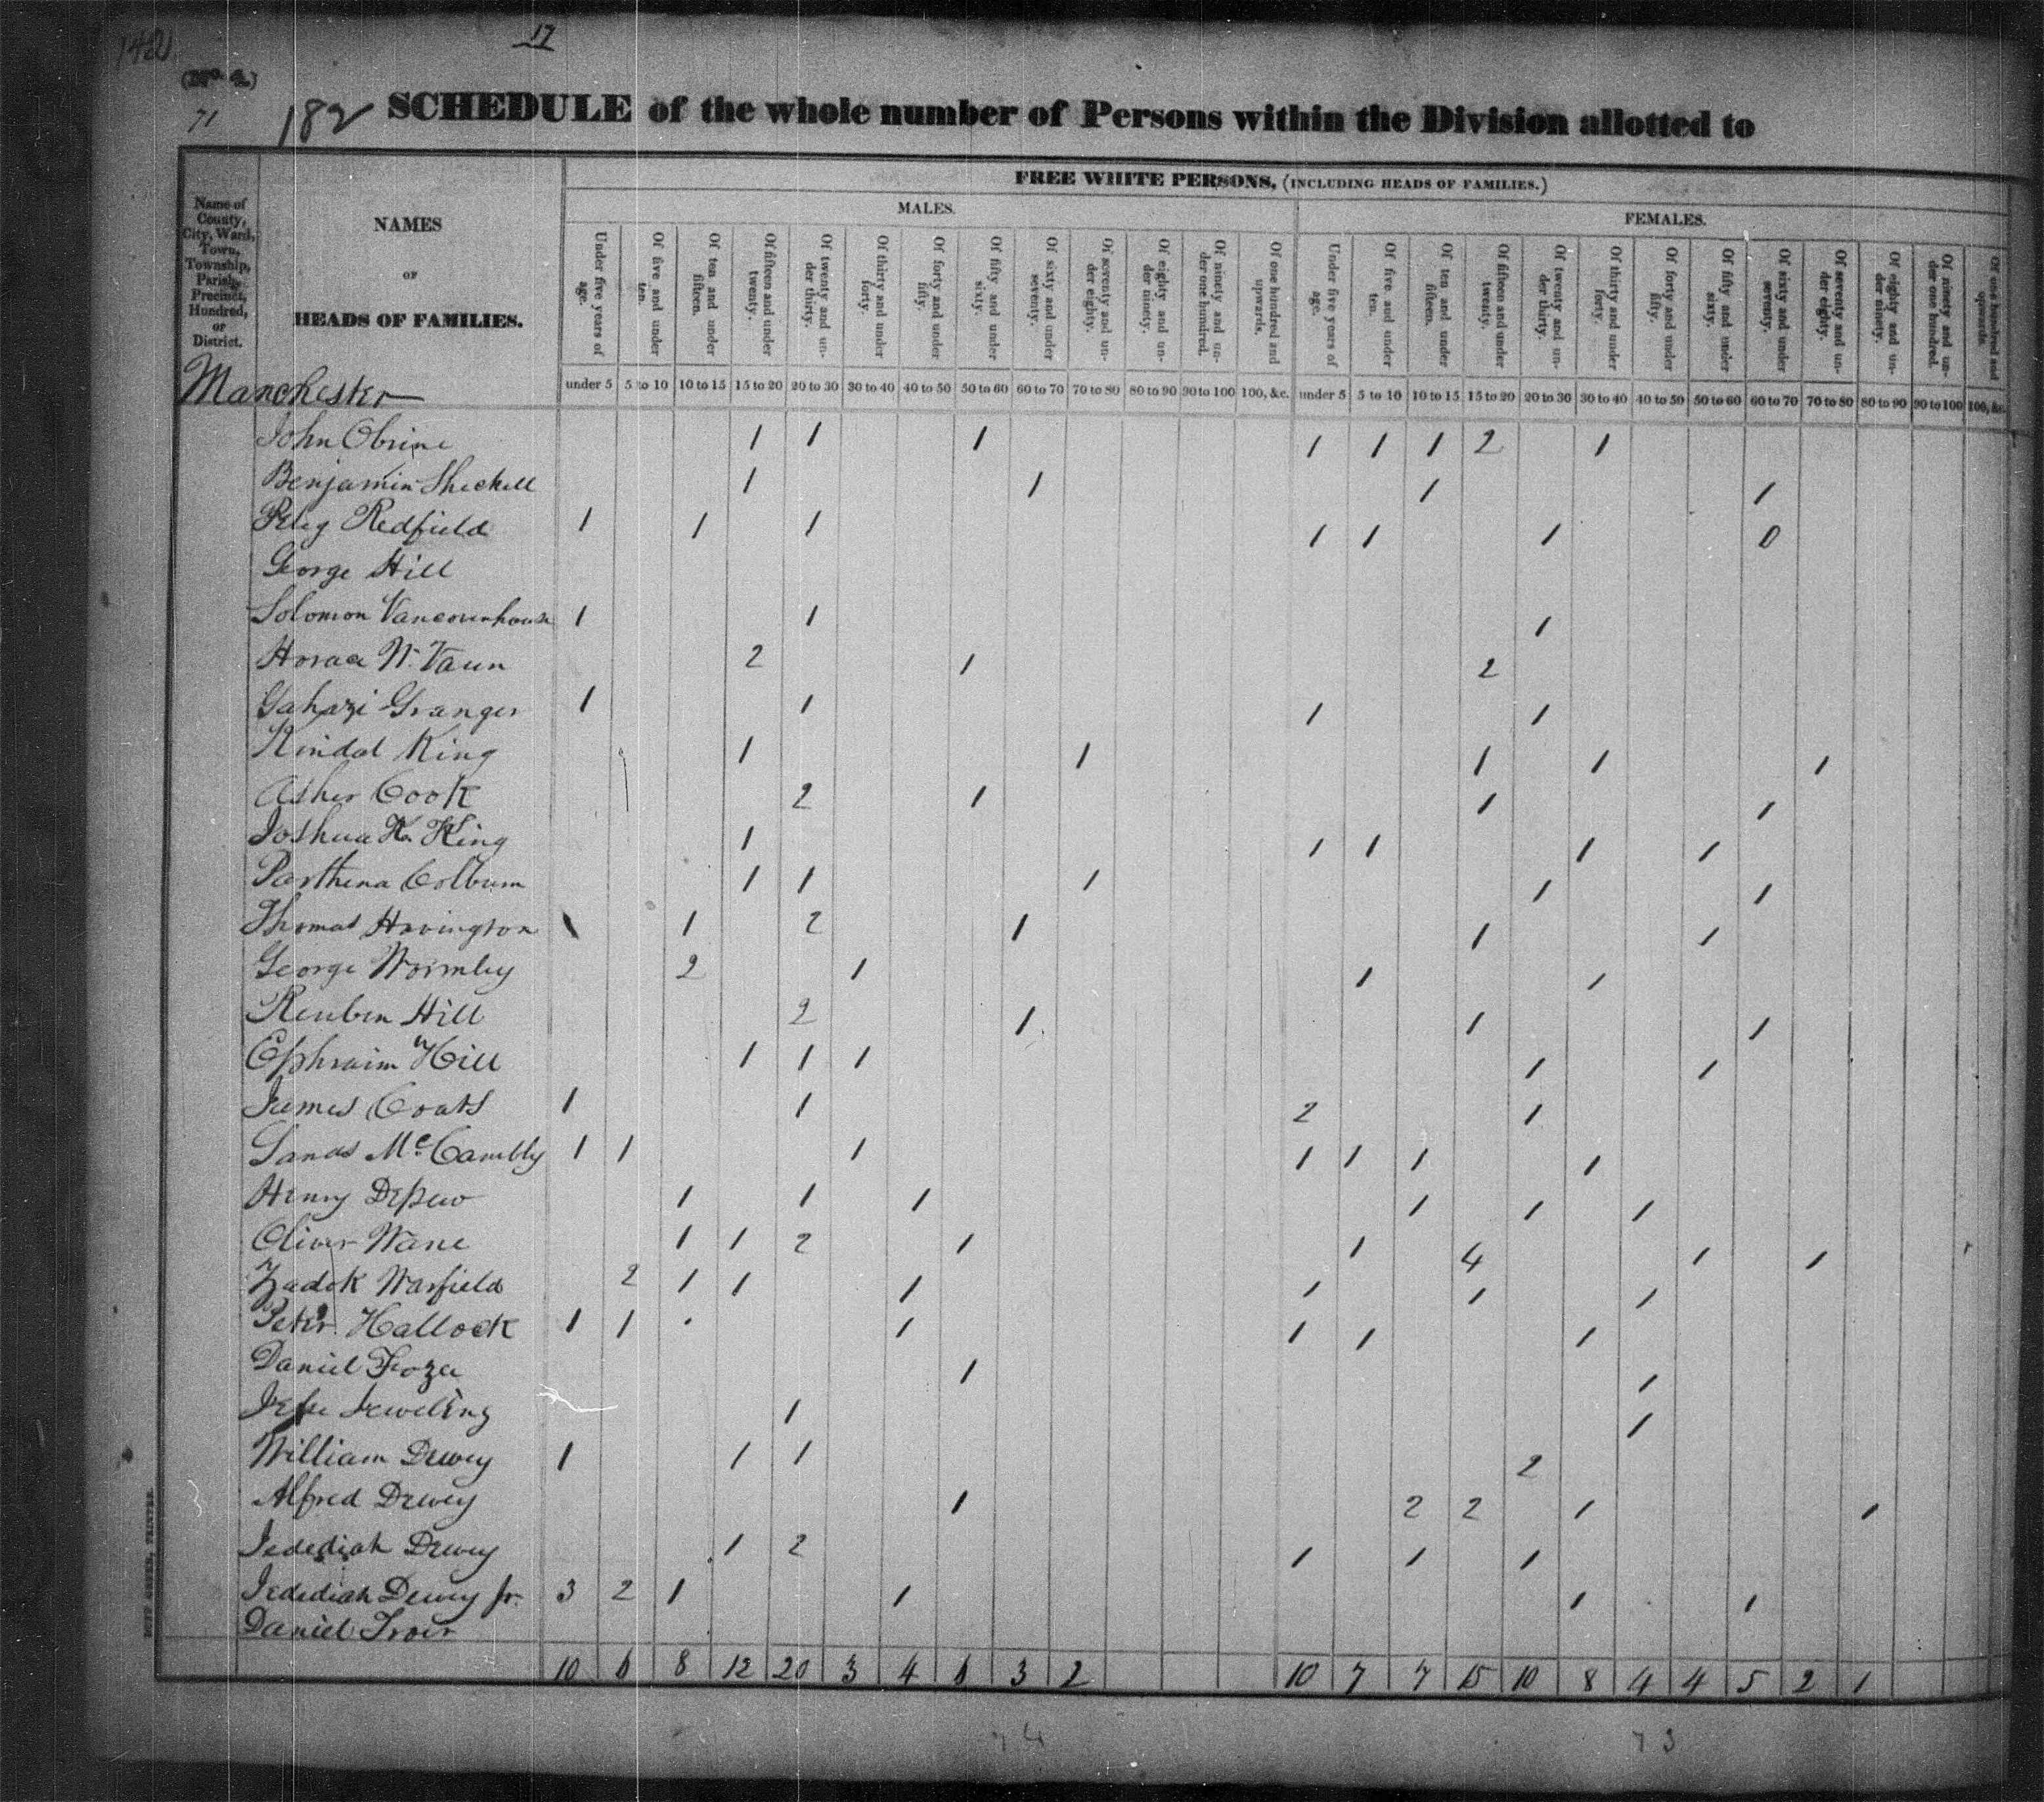 17
(No. 4.)
71 182 SCHEDULE of the whole number of Persons within the Division allotted to
FREE WHITE PERSONS, (INCLUDING HEADS OF FAMILIES.)
MALES. FEMALES.
Name of County, City, Ward, Town, Township, Parish, Precinct, Hundred, or District.
NAMES OF HEADS OF FAMILIES.
Under five years of age. Of five and under ten. Of ten and under fifteen. Of fifteen and under twenty. Of twenty and under thirty. Of thirty and under forty. Of forty and under fifty. Of fifty and under sixty. Of sixty and under seventy. Of seventy and under eighty. Of eighty and under ninety. Of ninety and under one hundred. Of one hundred and upwards. Under five years of age. Of five and under ten. Of ten and under fifteen. Of fifteen and under twenty. Of twenty and under thirty. Of thirty and under forty. Of forty and under fifty. Of fifty and under sixty. Of sixty and under seventy. Of seventy and under eighty. Of eighty and under ninety. Of ninety and under one hundred. Of one hundred and upwards.
under 5 5 to 10 10 to 15 15 to 20 20 to 30 30 to 40 40 to 50 50 to 60 60 to 70 70 to 80 80 to 90 90 to 100 100, &c. under 5 5 to 10 10 to 15 15 to 20 20 to 30 30 to 40 40 to 50 50 to 60 60 to 70 70 to 80 80 to 90 90 to 100 100, &c.
Manchester
John Obrine 1 1 1 1 1 1 2 1
Benjamin Sheckell 1 1 1 1
Peleg Redfield 1 1 1 1 1 1 0
George Hill
Solomon Vancouenhouse 1 1 1
Horace W. Vaun 2 1 2
Gahazi Granger 1 1 1 1
Kindal King 1 1 1 1 1
Asher Cook 2 1 1 1
Joshua K. King 1 1 1 1 1
Parthena Colburn 1 1 1 1 1
Thomas Harington 1 1 2 1 1 1
George Wormley 2 1 1 1
Reuben Hill 2 1 1 1
Ephraim Hill 1 1 1 1 1
James Coats 1 1 2 1
Sands Mc Cambly 1 1 1 1 1 1 1
Henry Depew 1 1 1 1 1 1
Oliver Ware 1 1 2 1 1 4 1 1
Zadok Warfield 2 1 1 1 1 1 1
Peter Hallock 1 1 1 1 1 1
Daniel 1 1
Jesse 1 1
William Dewey 1 1 1 2
Alfred Dewey 1 2 2 1 1
Jedediah Dewey 1 2 1 1 1
Jedediah Dewey Jr. 3 2 1 1 1 1
Daniel
10 6 8 12 20 3 4 6 3 2 10 7 7 15 10 8 4 4 5 2 1
74 73